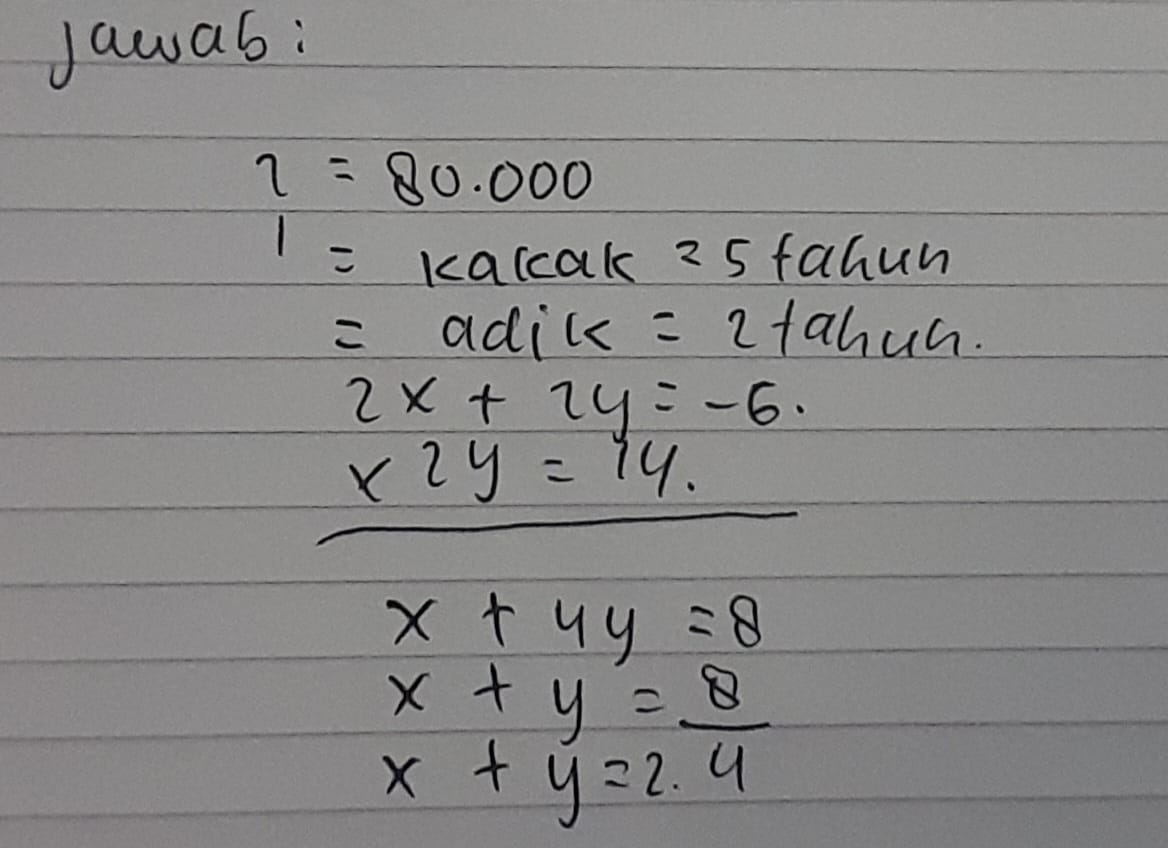 Jawab :
2 = 80.000
1 = kakak 25 tahun
= adik = 2 tahun.
2x + 2y = -6.
x 2y = 14.
x + 4y = 8
x + y = 8
x + y = 2. 4